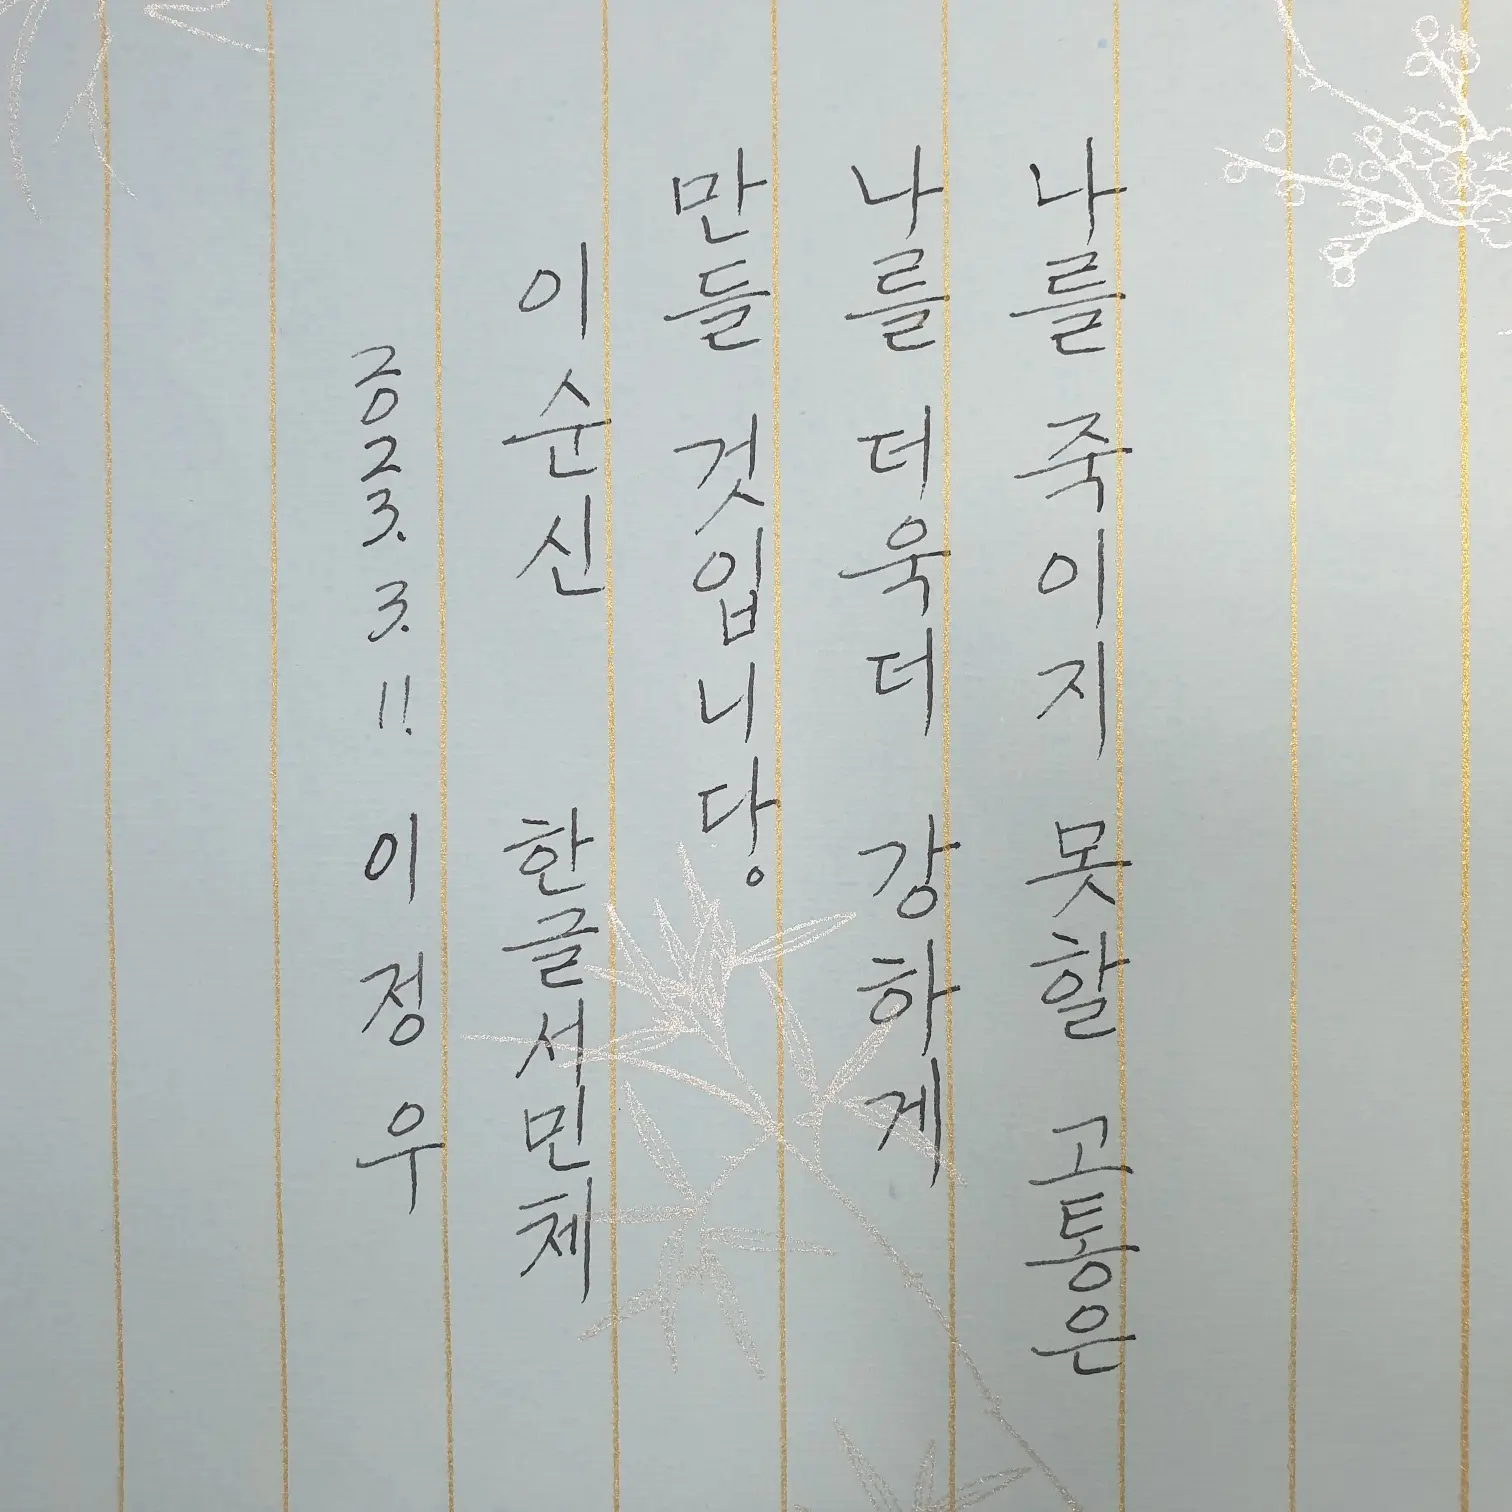 나를 죽이지 못할 고통은
나를 더욱더 강하게
만들 것입니다.
이순신 한글서민체
2023. 3. 11. 이정우